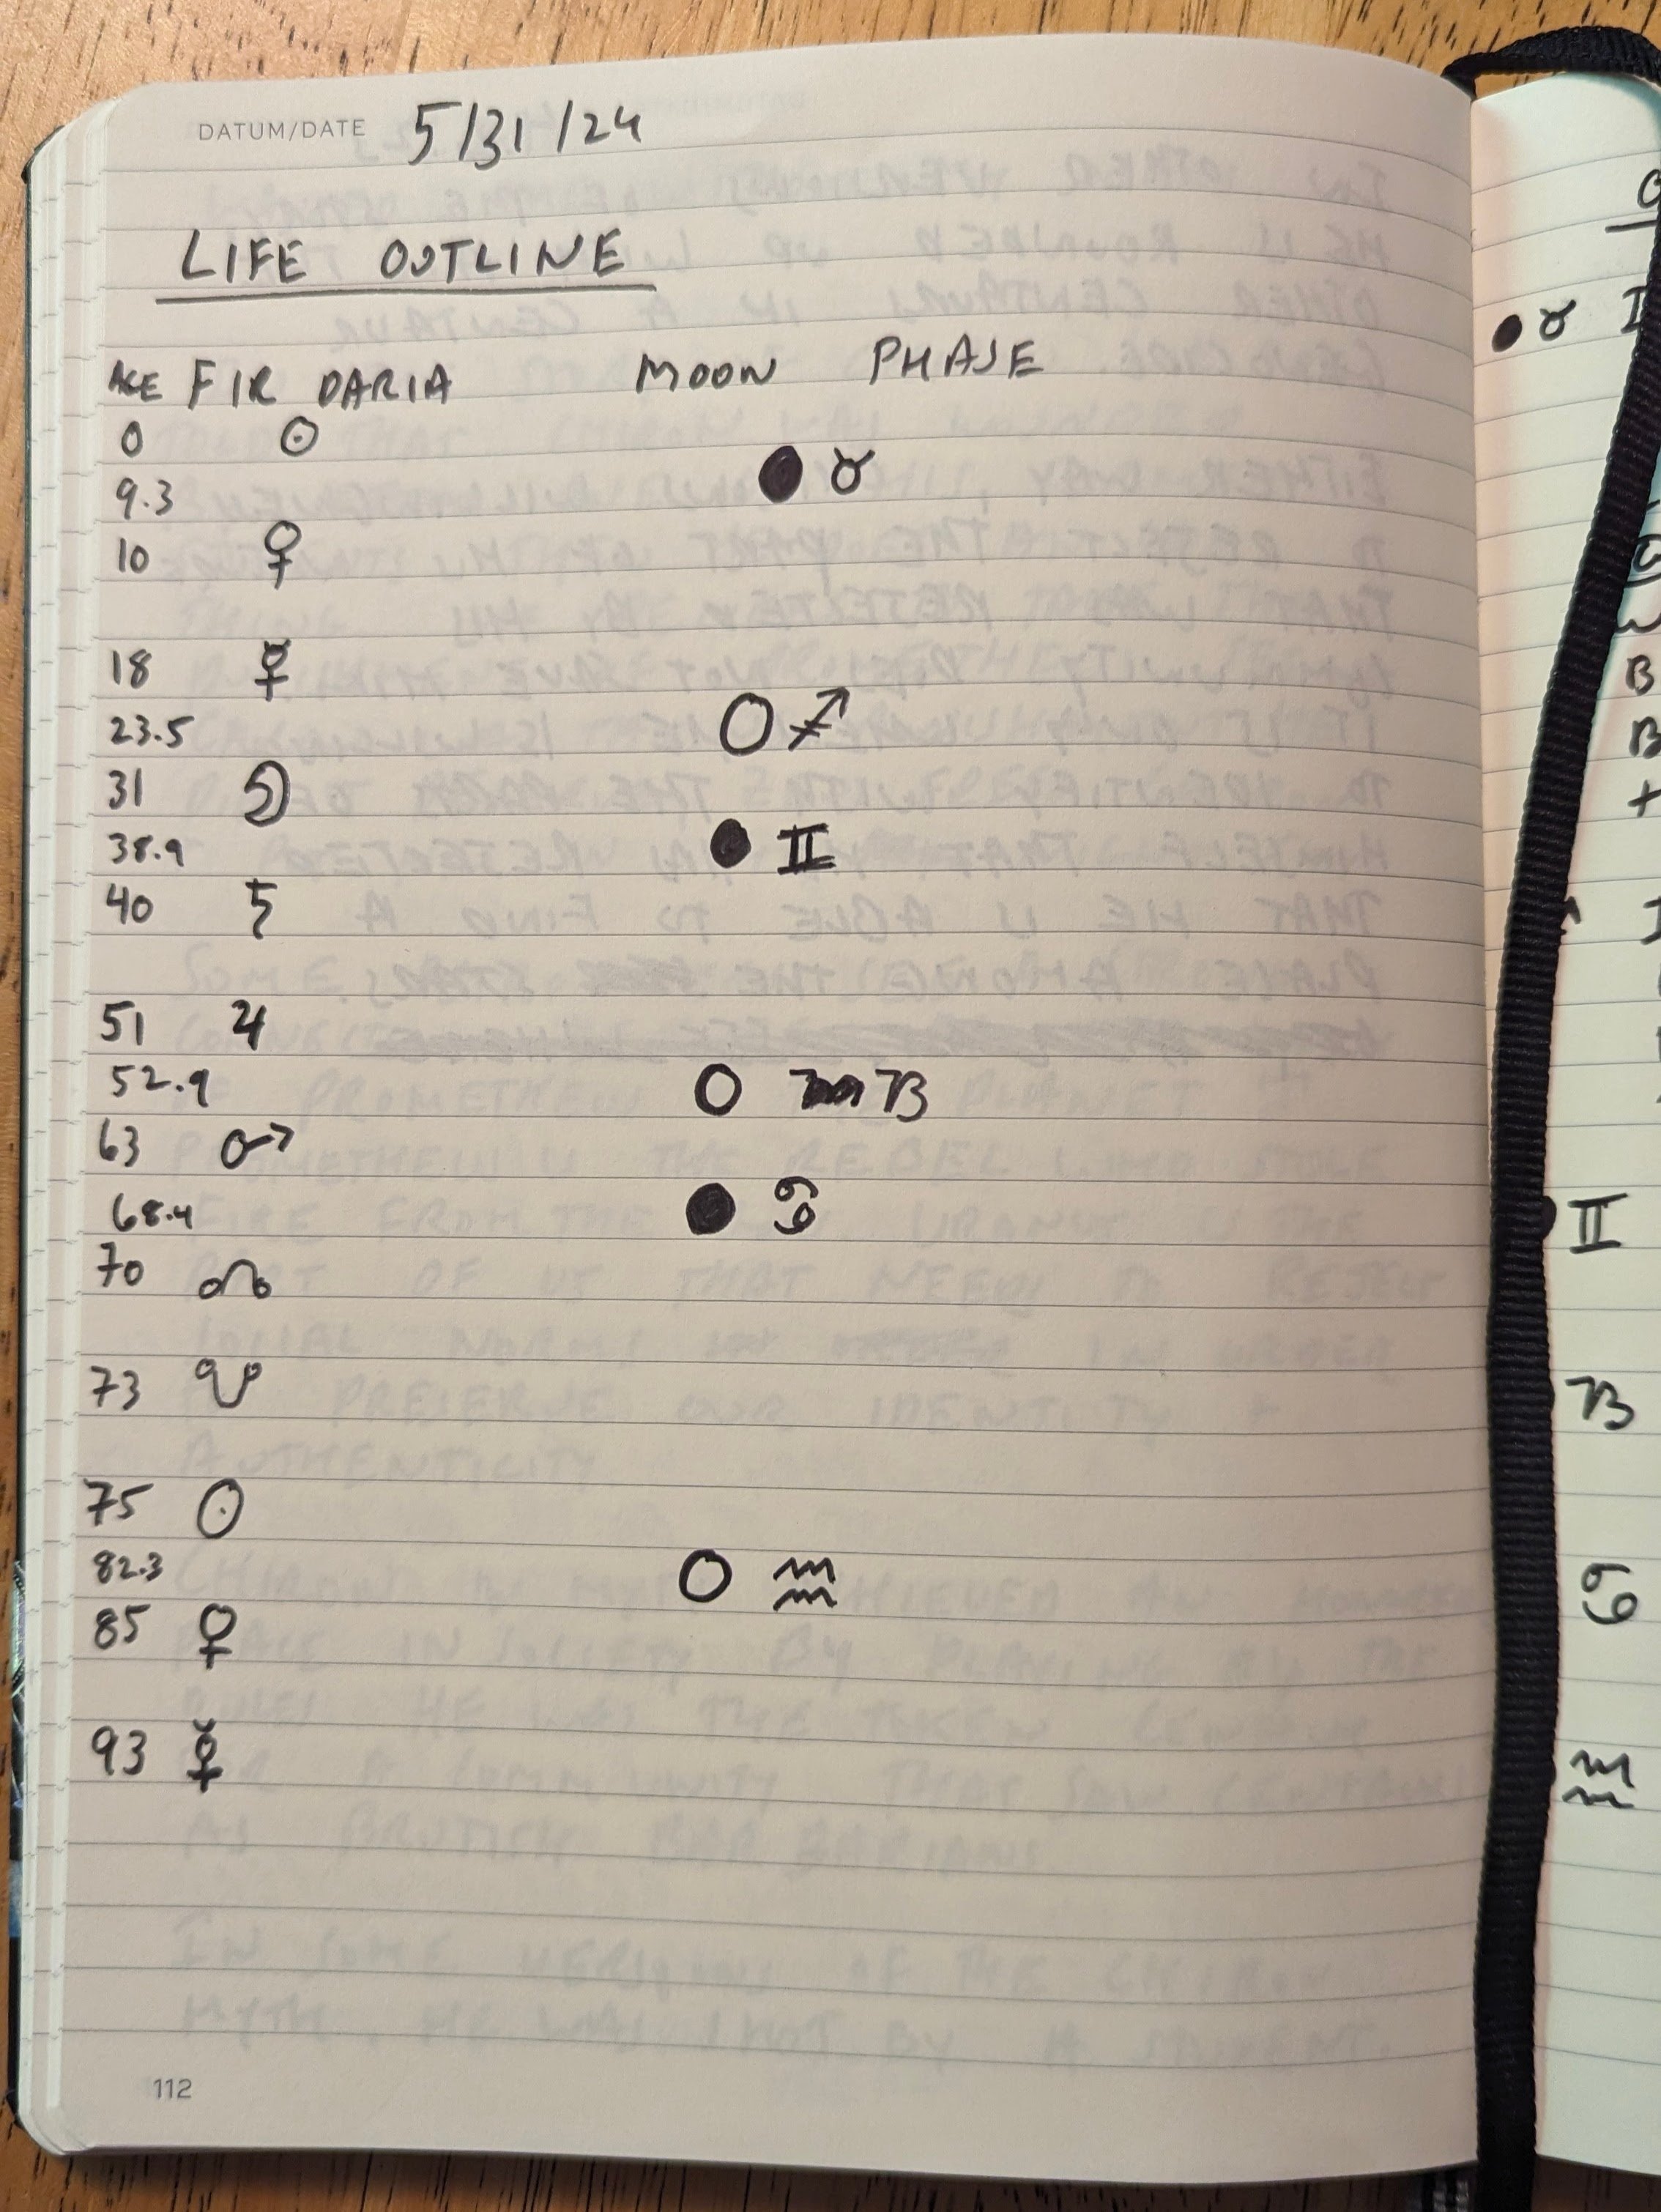 DATUM/DATE 5/31/24
LIFE OUTLINE
AGE FIRDARIA MOON PHASE
0 ☉
9.3 ● ♉
10 ♀
18 ☿
23.5 ○ ♐
31 ☽
38.9 ● ♊
40 ♄
51 ♃
52.9 ○ ♑
63 ♂
68.4 ● ♋
70 ☊
73 ☋
75 ☉
82.3 ○ ♒
85 ♀
93 ☿
112
● ♉
B
B
+
♊
♑
♋
♒